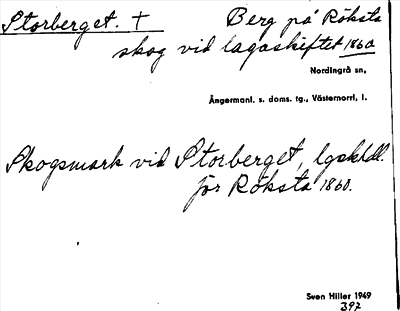 Storberget. † Berg på Röksta
skog vid lagaskiftet 1860
Nordingrå sn,
Ångermanl. s. doms. tg., Västernorrl, l.
Skogsmark vid Storberget, lgskhdl.
för Röksta 1860.
Sven Hiller 1949
392